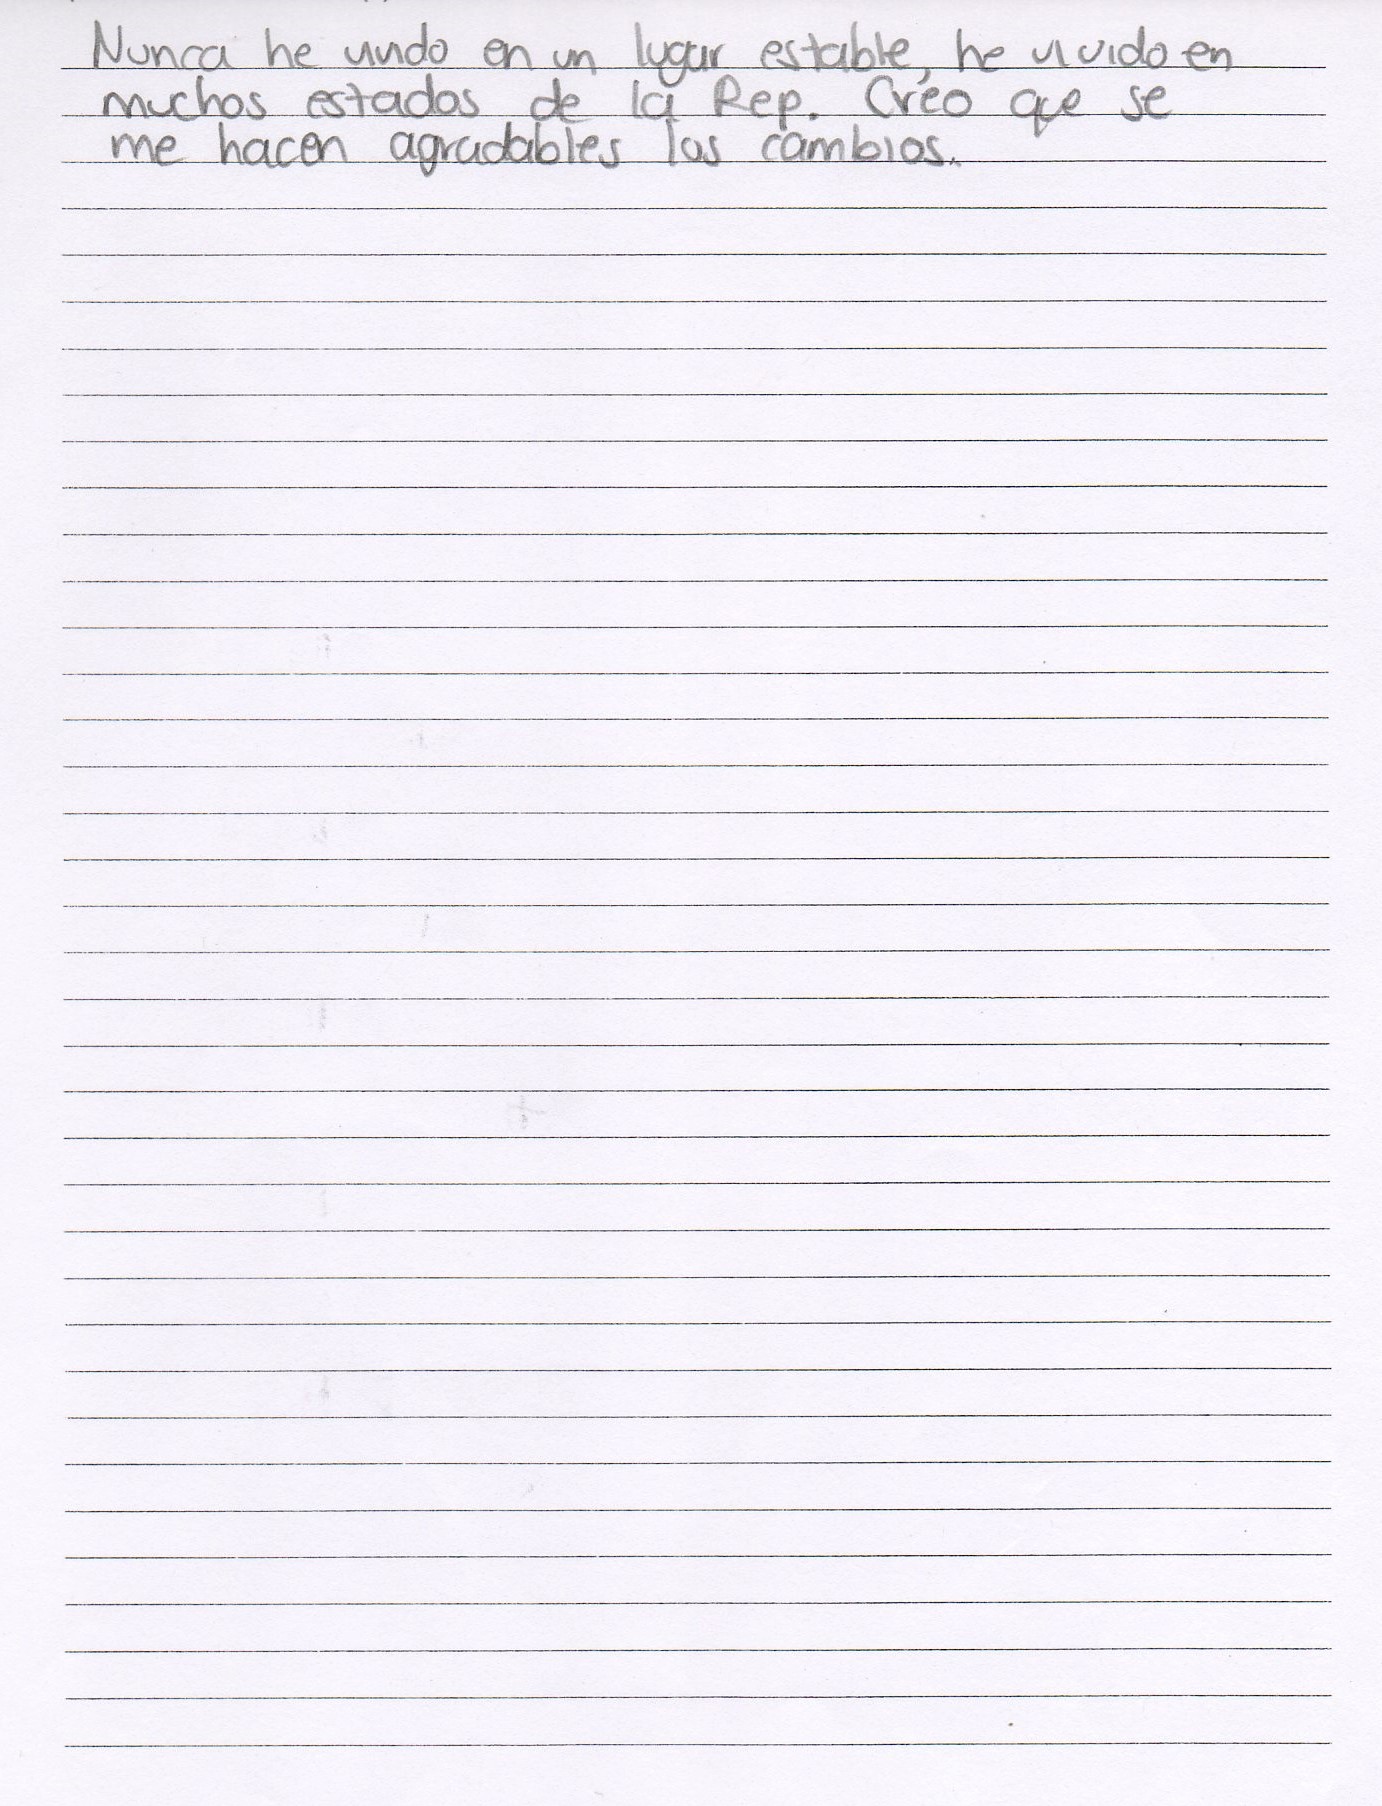 Nunca he vivido en un lugar estable, he vivido en
muchos estados de la Rep. Creo que se
me hacen agradables los cambios.